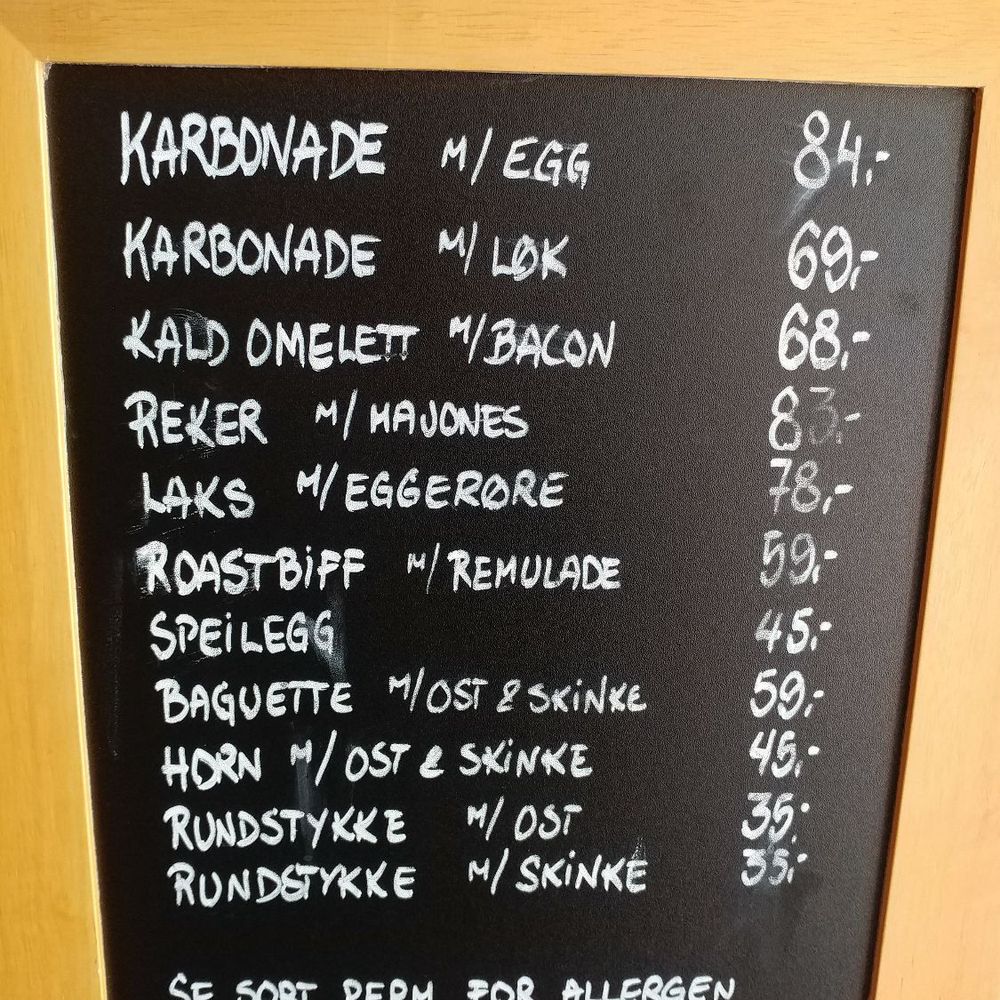 KARBONADE M/ EGG 84,-
KARBONADE M/ LØK 69,-
KALD OMELETT M/ BACON 68,-
REKER M/ MAJONES 83,-
LAKS M/ EGGERØRE 78,-
ROASTBIFF M/ REMULADE 59,-
SPEILEGG 45,-
BAGUETTE M/ OST & SKINKE 59,-
HORN M/ OST & SKINKE 45,-
RUNDSTYKKE M/ OST 35,-
RUNDSTYKKE M/ SKINKE 35,-
SE SORT PERM FOR ALLERGEN